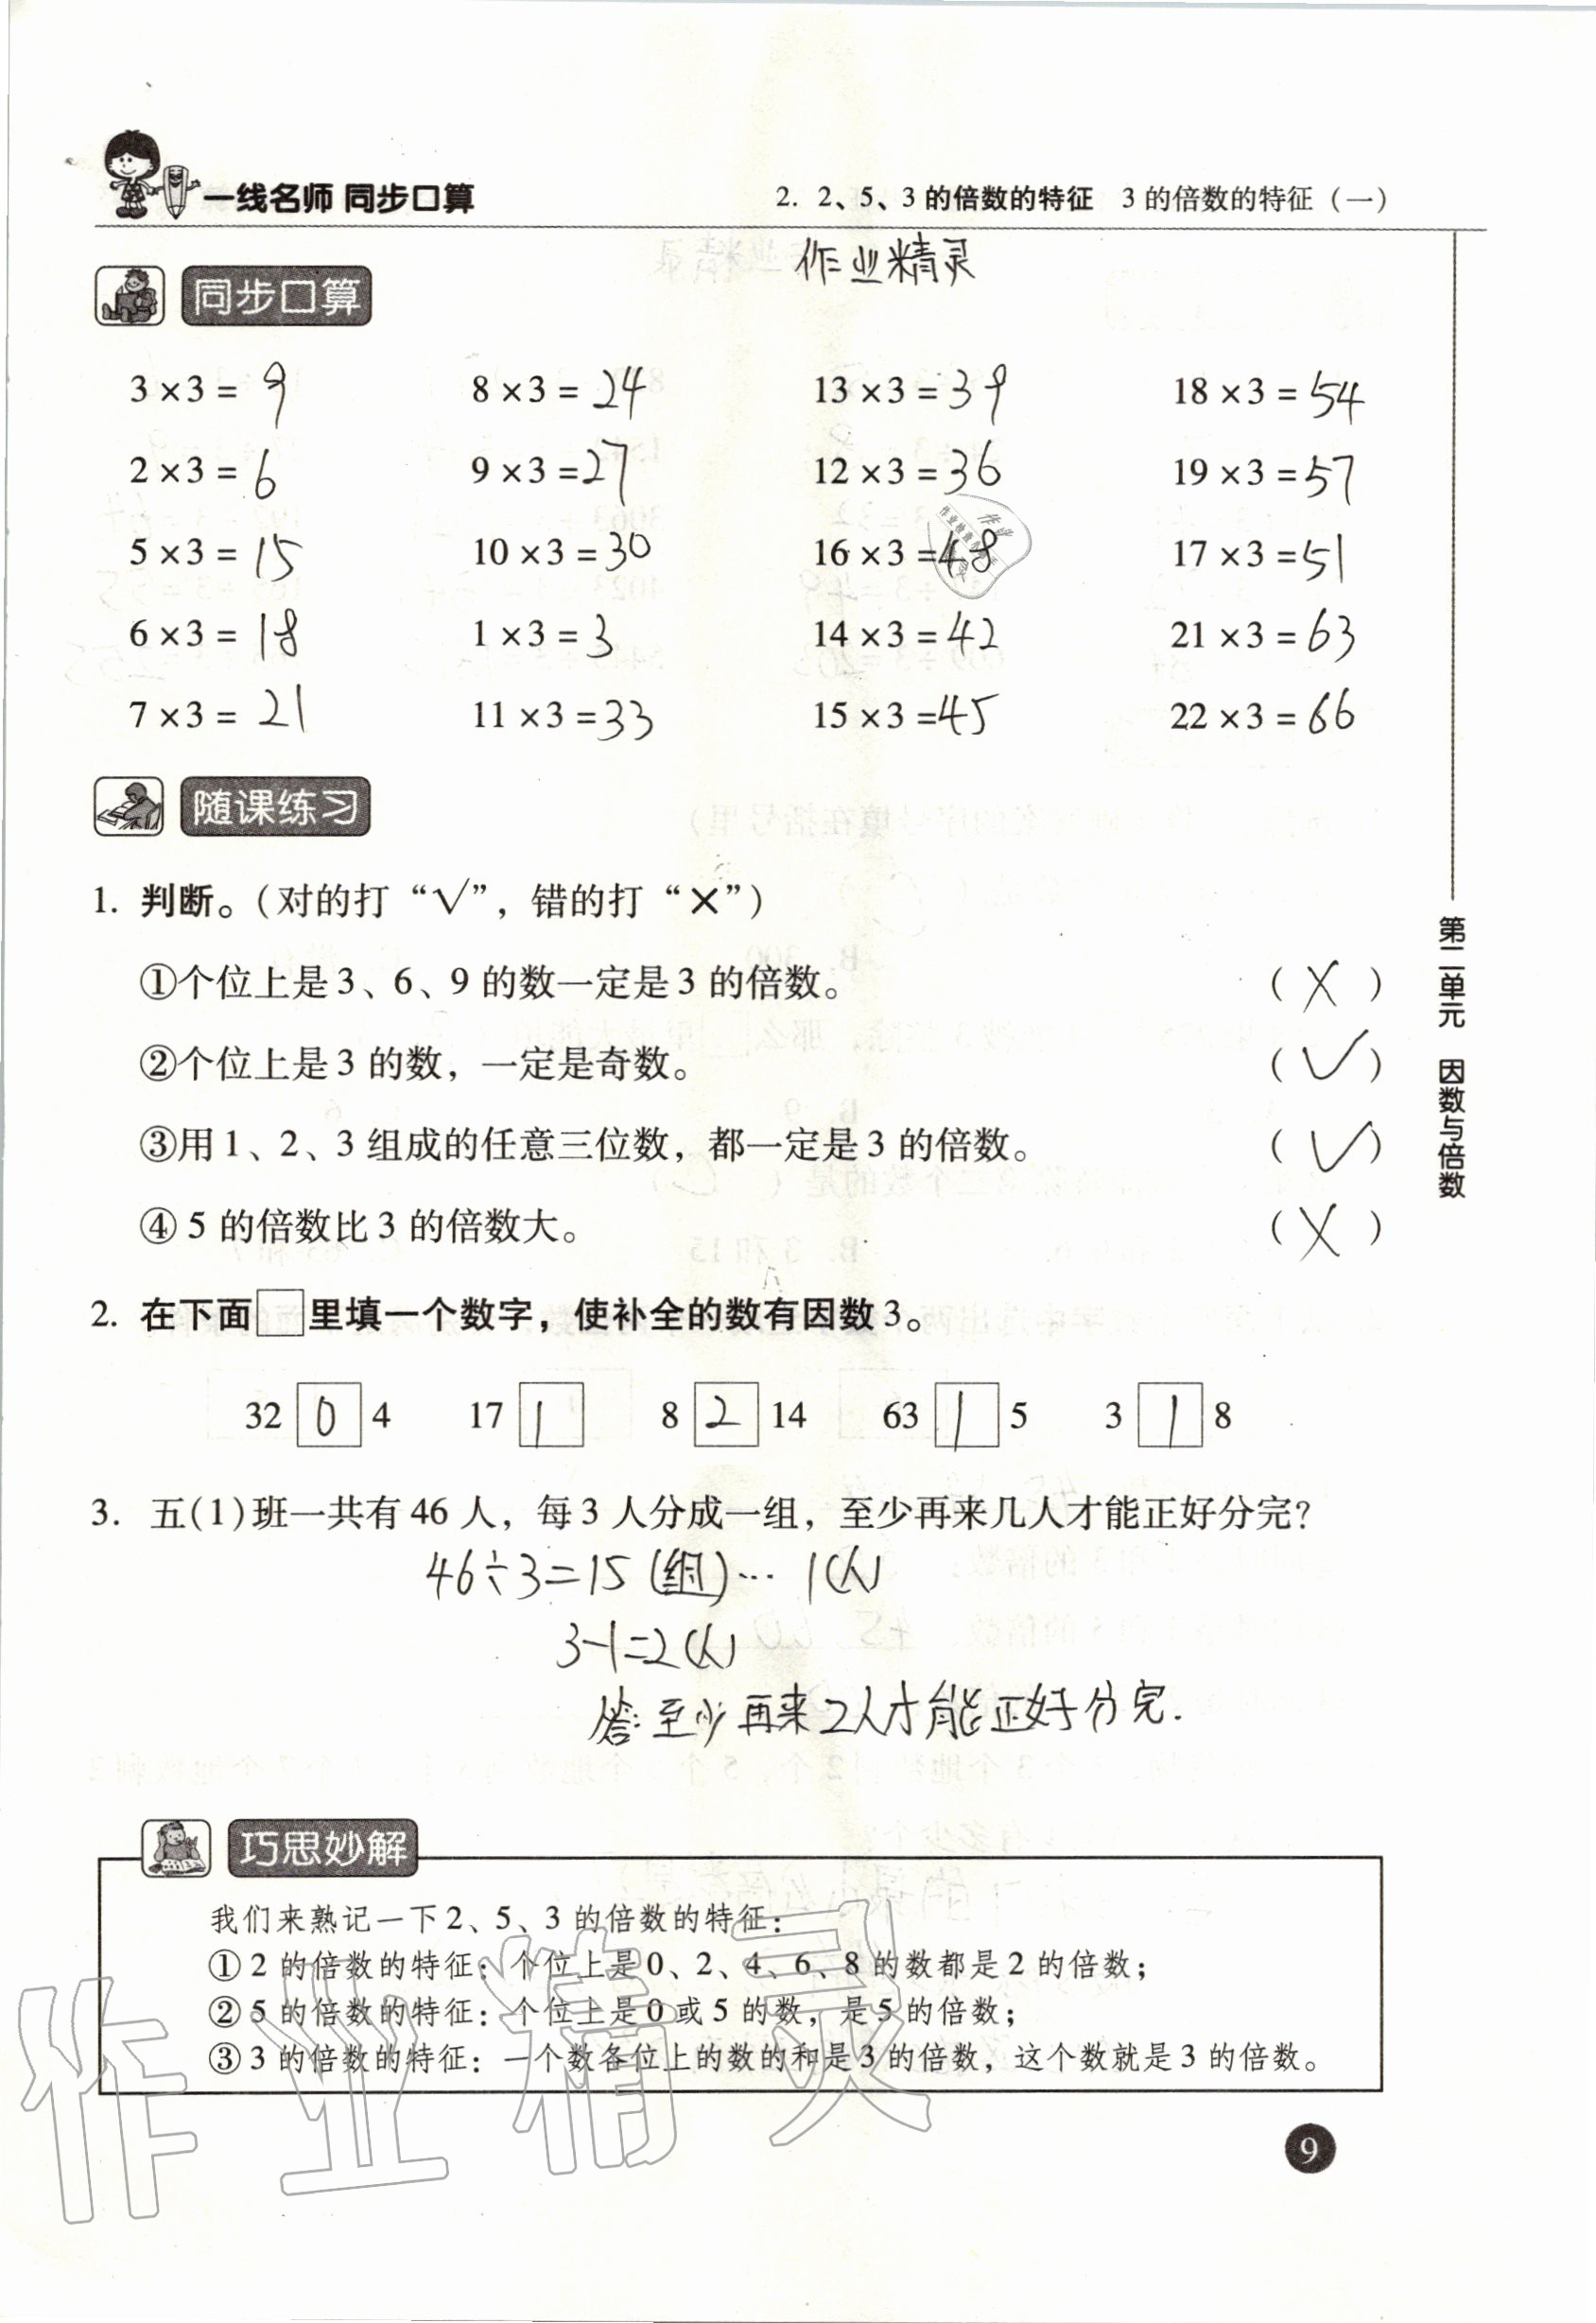 一线名师 同步口算
2. 2、5、3的倍数的特征 3的倍数的特征（一）
作业精灵
同步口算
3×3= 9 8×3= 24 13×3= 39 18×3= 54
2×3= 6 9×3= 27 12×3= 36 19×3= 57
5×3= 15 10×3= 30 16×3= 48 17×3= 51
6×3= 18 1×3= 3 14×3= 42 21×3= 63
7×3= 21 11×3= 33 15×3= 45 22×3= 66
随课练习
1. 判断。（对的打“√”，错的打“×”）
①个位上是3、6、9的数一定是3的倍数。 （ × ）
②个位上是3的数，一定是奇数。 （ √ ）
③用1、2、3组成的任意三位数，都一定是3的倍数。 （ √ ）
④5的倍数比3的倍数大。 （ × ）
2. 在下面□里填一个数字，使补全的数有因数3。
32 0 4 17 1 8 2 14 63 1 5 3 1 8
3. 五(1)班一共有46人，每3人分成一组，至少再来几人才能正好分完？
46÷3=15(组)… 1(人)
3-1=2(人)
答:至少再来2人才能正好分完.
巧思妙解
我们来熟记一下2、5、3的倍数的特征：
①2的倍数的特征：个位上是0、2、4、6、8的数都是2的倍数；
②5的倍数的特征：个位上是0或5的数，是5的倍数；
③3的倍数的特征：一个数各位上的数的和是3的倍数，这个数就是3的倍数。
作业精灵
9
第二单元 因数与倍数